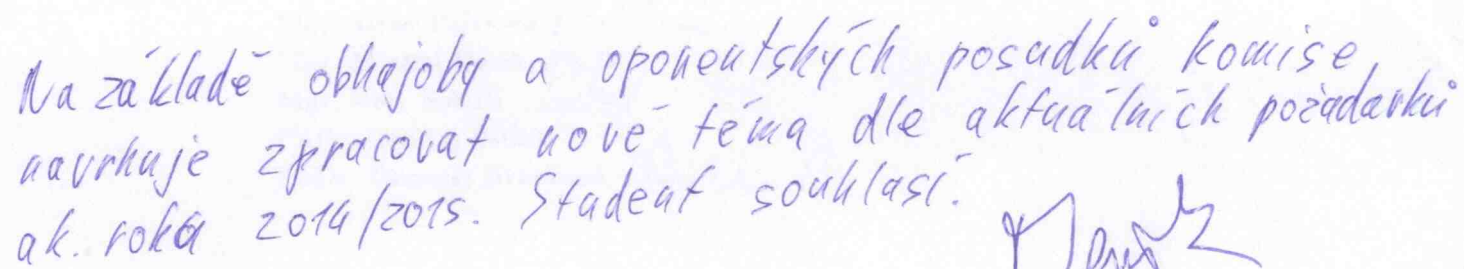 Na základě obhajoby a oponentských posudků komise
navrhuje zpracovat nové téma dle aktuálních požadavků
ak. roka 2014/2015. Student souhlasí.